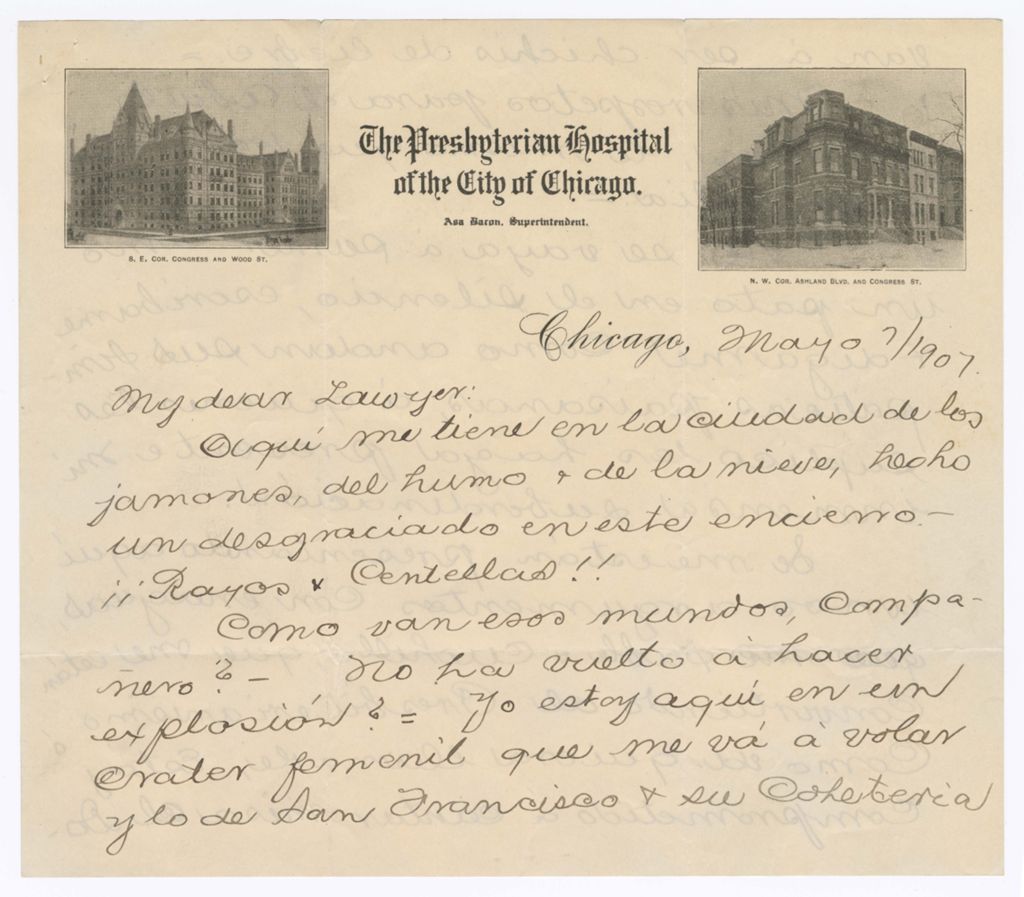 The Presbyterian Hospital
of the City of Chicago.
Asa Bacon, Superintendent.
S. E. Cor. Congress and Wood St.
N. W. Cor. Ashland Blvd. and Congress St.
Chicago, Mayo 7/1907.
My dear Lawyer:
Aquí me tiene en la ciudad de los
jamones, del humo & de la nieve, hecho
un desgraciado en este encierro.—
¡¡Rayos & Centellas!!
Como van esos mundos, compa-
ñero?— No ha vuelto à hacer
explosión?= Yo estoy aquí en un
crater femenil que me vá à volar
y lo de San Francisco & su Coheteria